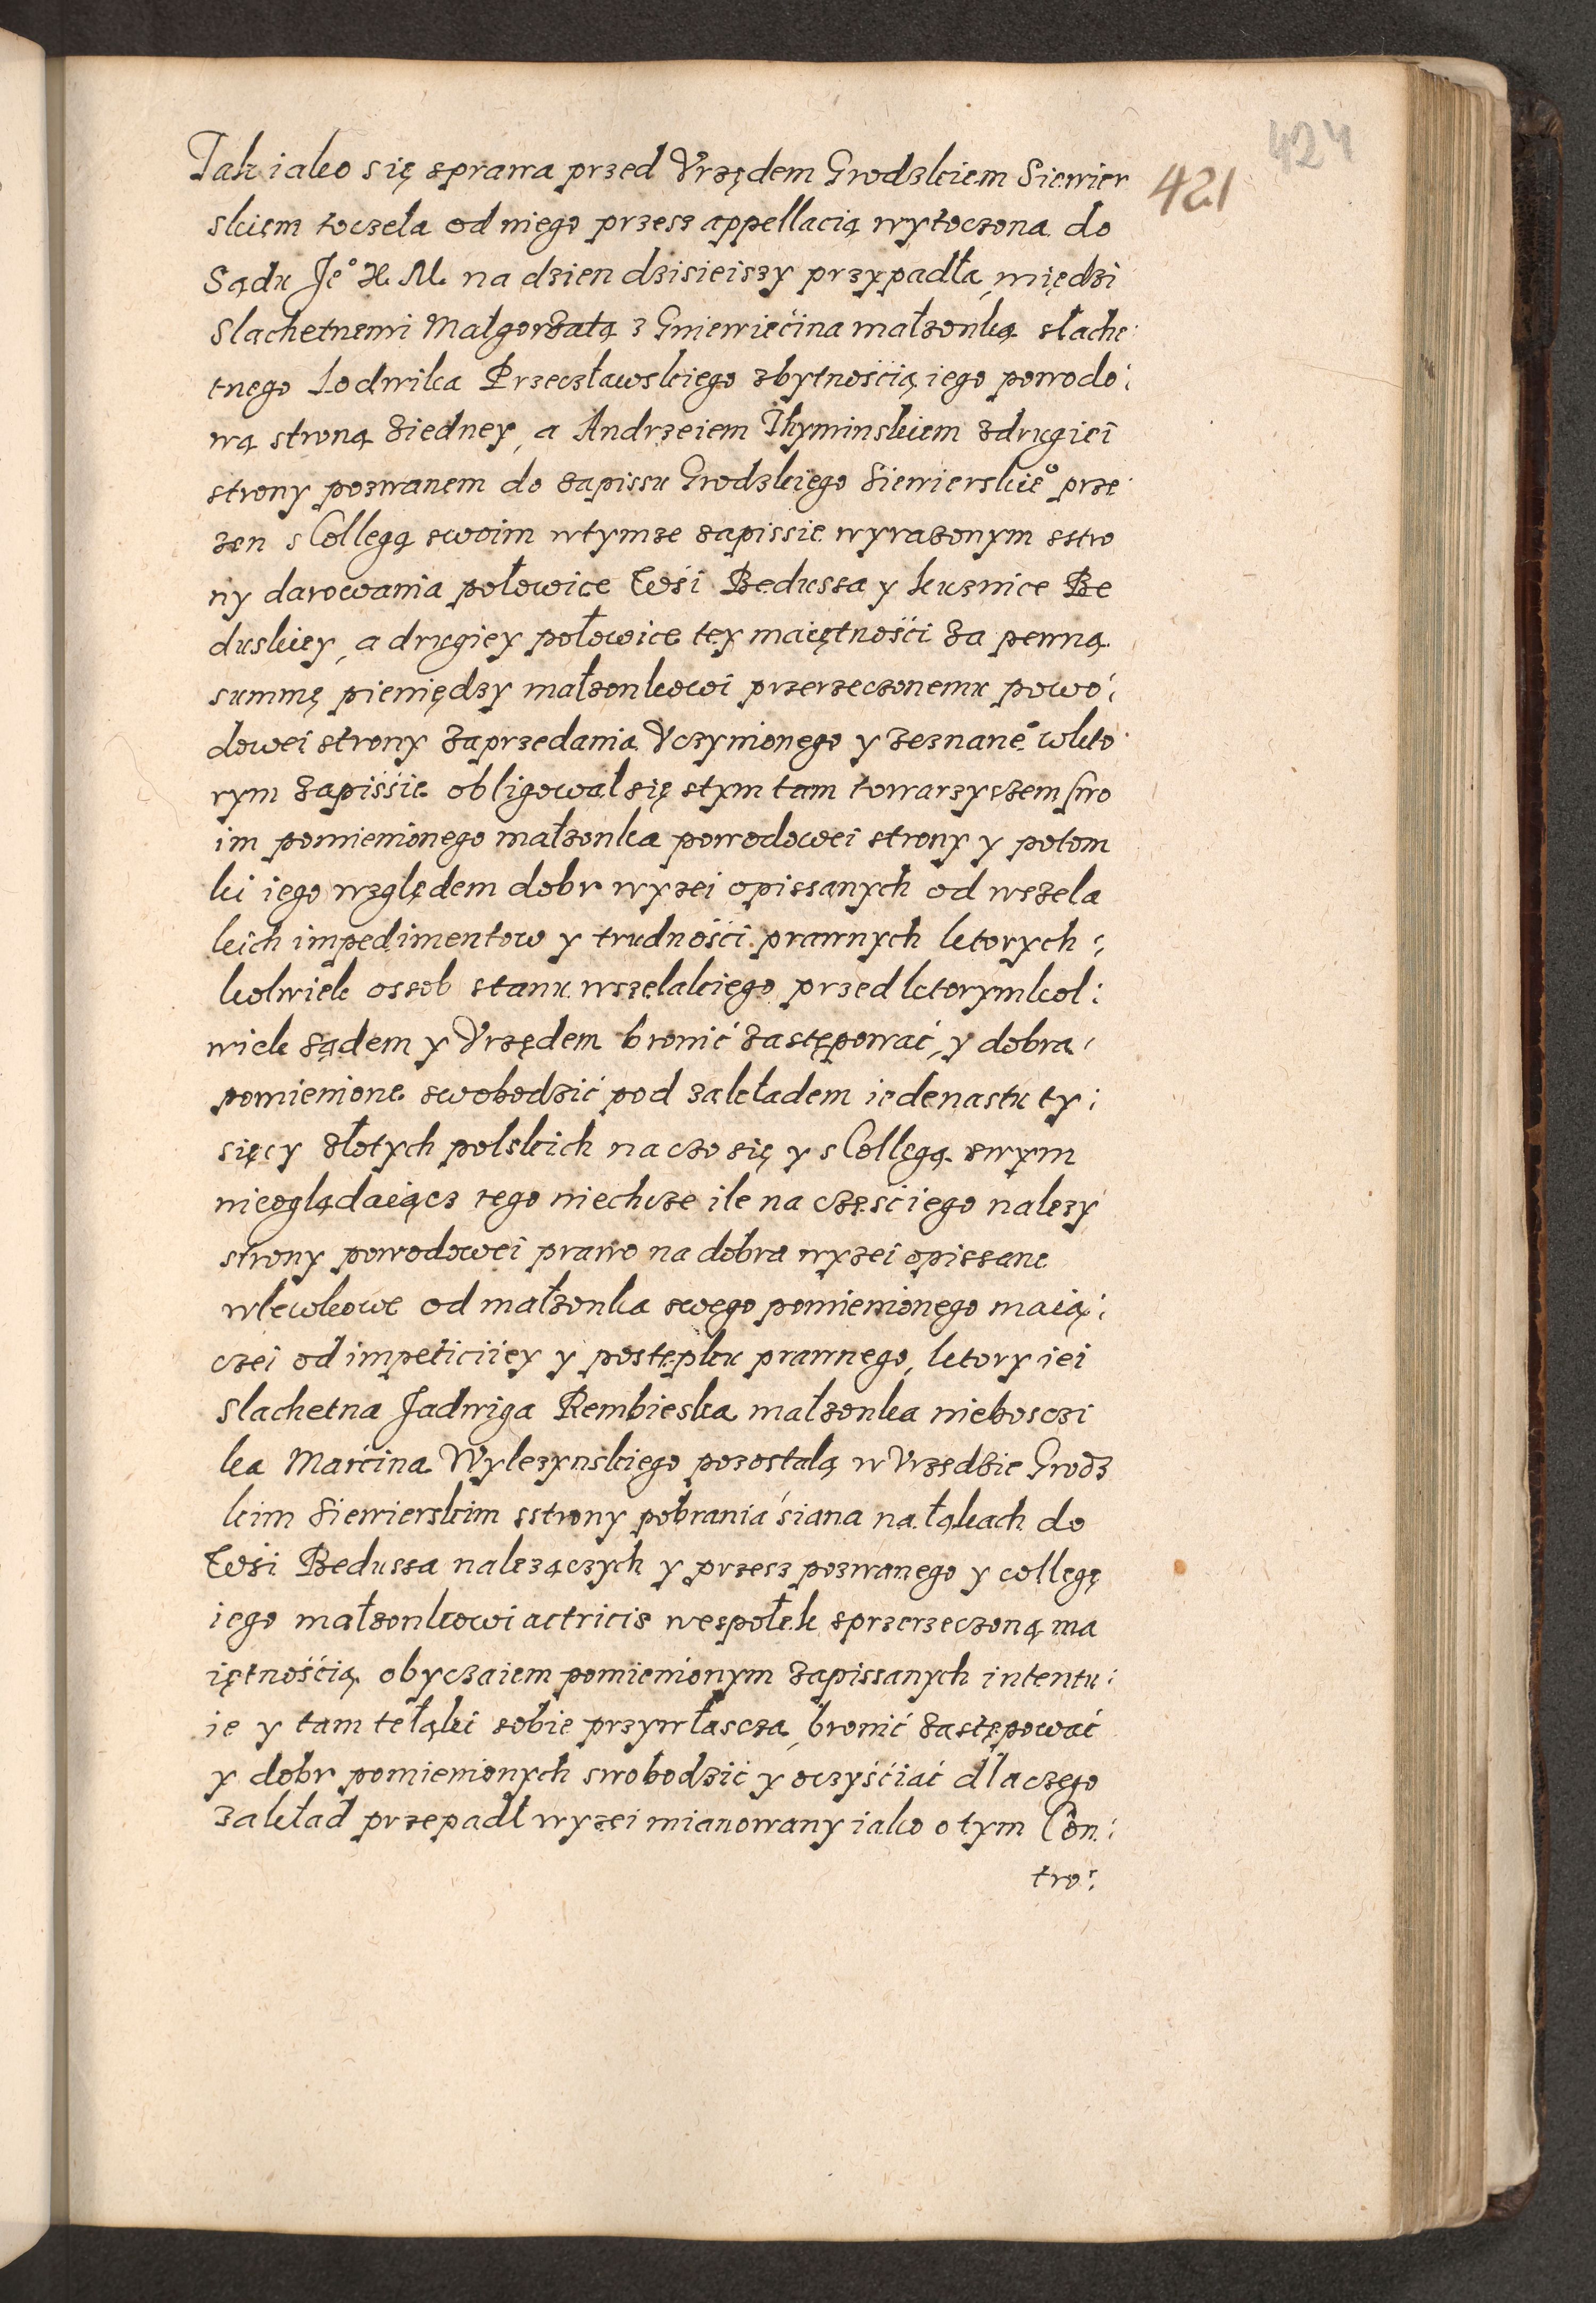 424
421
Tak iako się sprawa przed Vrzędem Grodzkiem Siewier
skięm toczela od niego przesz appellacią wytoczona do
Sądu Je° X. M. na dzien dzisieiszy przypadła, między
Slachetnemi Małgorzatą z Gniewięcina małzonką slache:
tnego Lodwika Przeczławskiego zbytnością iego powodo:
wą stroną ziedney, a Andrzeiem Thyminskiem zdrugiei
strony pozwanem do zapissu Grodzkięgo Siewierskie° prze
zen s Collegą swoim wtymze zapissie wyrazonym sstro
ny darowania połowice Wsi Bedussa y kuznice Be
duskiey, a drugiey połowice tey maiętności za pewną
summę pieniędzy małzonkowi przerzeczonemu powo:
dowei strony zaprzedania Vczynionego y zeznane° wkto
rym zapissie obligował się stym tam towarzyszem swo
im pomienionego małzonka powodowei strony y potom
ki iego względem dobr wyzei opissanych od wszela
kich impedimentow y trudności prawnych ktorych:
kolwiek ossob stanu wszelakiego przed ktorymkol:
wiek sądem y Vrzędem bronić zastępować, y dobra
pomienione swobodzić pod zakładem iedenastu ty:
sięcy złotych polskich na czo się y s Collegą swym
nieoglądaiącz tego niechcze ile na częsc iego nalezy
strony powodowei prawo na dobra wyzei opissane
wlewkowe od małzonka swęgo pomienionego maią:
czei od impeticiiey y postępku prawnego, ktory iei
Slachetna Jadwiga Rembieska małzonka niebosczi
ka Marcina Wylezynskiego pozostalą w Vrzędzie Grodz
kim Siewierskim sstrony pobrania siana na łąkach do
Wsi Bedussa nalezączych y przesz pozwanego y collegę
iego małzonkowi actricis wespołek sprzerzeczoną ma
iętnością obyczaiem pomienionym zapissanych intentu:
ie y tam te łąki sobie przywłascza, bronić zastępować
y dobr pomienionych swobodzić y oczyściać dla czego
zakład przepadł wyzei mianowany iako o tym Con:
tro: